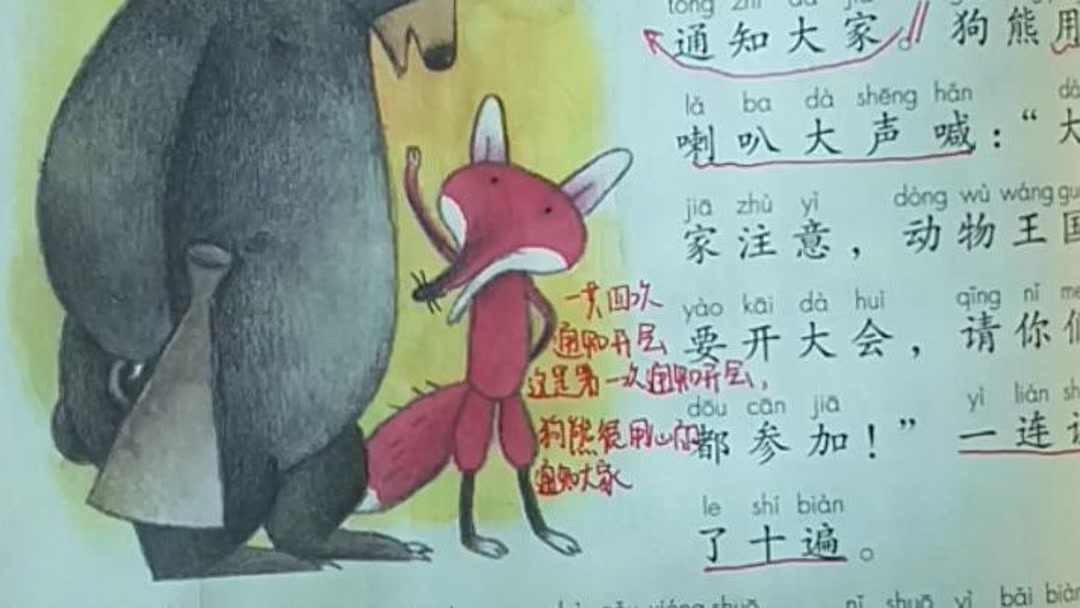 tōng zhī dà jiā
通知大家。狗熊用
lǎ ba dà shēng hǎn
喇叭大声喊：“大
jiā zhù yì dòng wù wáng gu
家注意，动物王国
yào kāi dà huì qǐng nǐ me
要开大会，请你们
dōu cān jiā yì lián sh
都参加！”一连
le shí biàn
了十遍。
nǐ shuō yì bǎi biàn
一共四次
通知开层
这是第一次通知开层，
狗熊很用心的
通知大家